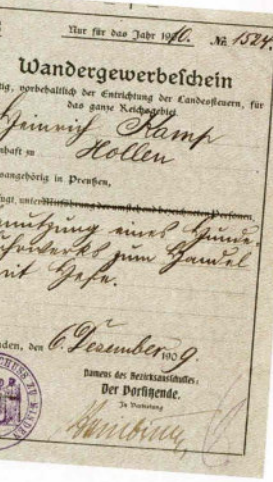 Nur für das Jahr 1910. № 1524
Wandergewerbeschein
tig, vorbehaltlich der Entrichtung der Landessteuern, für
das ganze Reichsgebiet
Heinrich Kamp
nhaft zu Hollen
tsangehörig in Preußen,
fugt, unter Mitführung der umstehend bezeichneten Personen,
nutzung eines Hunde-
uhrwerks zum Handel
it Hefe.
nden, den 6. Dezember 1909.
Namens des Bezirksausschusses:
Der Vorsitzende.
In Vertretung
ZU MINDEN